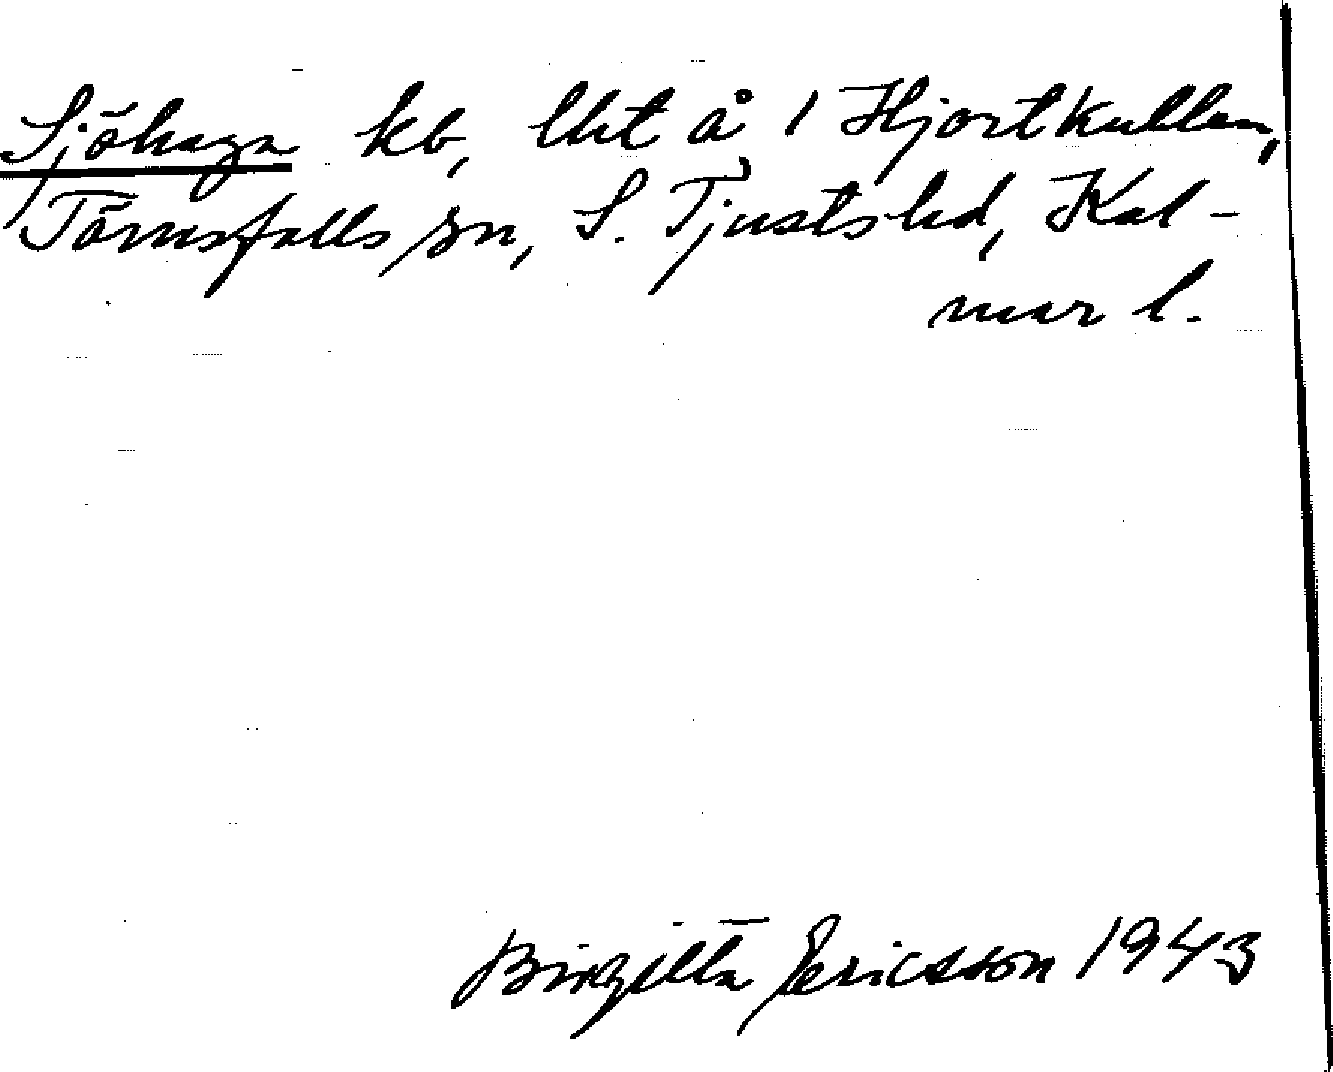 Sjöhaga kb, lht å 1 Hjortkullen,
Törnsfalls sn, S. Tjusts hd, Kal-
mar l.
Birgitta Ericsson 1943